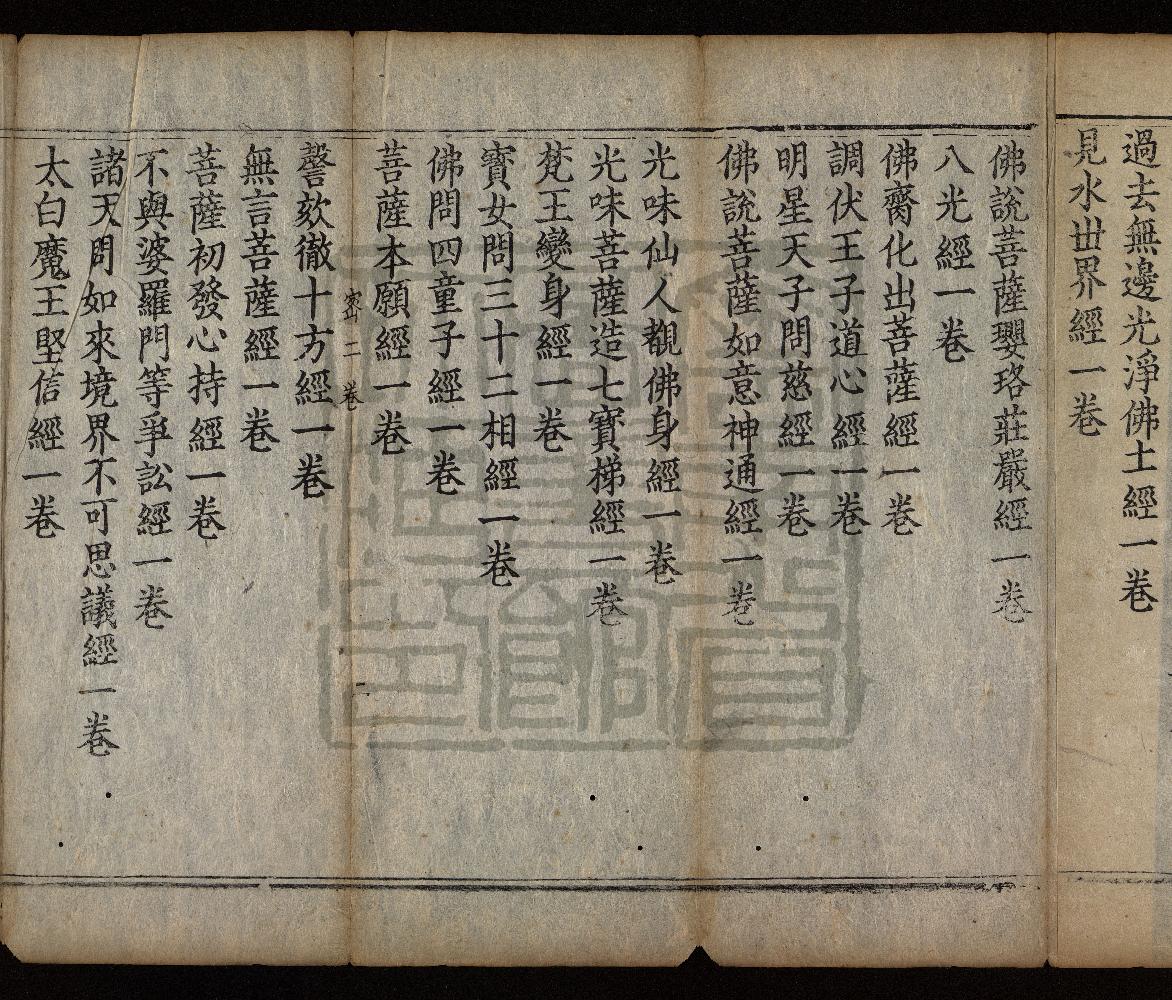 過去無邊光淨佛土經一卷
見水世界經一卷
佛說菩薩瓔珞莊嚴經一卷
八光經一卷
佛臍化出菩薩經一卷
調伏王子道心經一卷
明星天子問慈經一卷
佛說菩薩如意神通經一卷
光味仙人覩佛身經一卷
光味菩薩造七寶梯經一卷
梵王變身經一卷
寶女問三十二相經一卷
佛問四童子經一卷
菩薩本願經一卷
密二卷
二
謦欬徹十方經一卷
無言菩薩經一卷
菩薩初發心持經一卷
不與婆羅門等爭訟經一卷
諸天問如來境界不可思議經一卷
太白魔王堅信經一卷